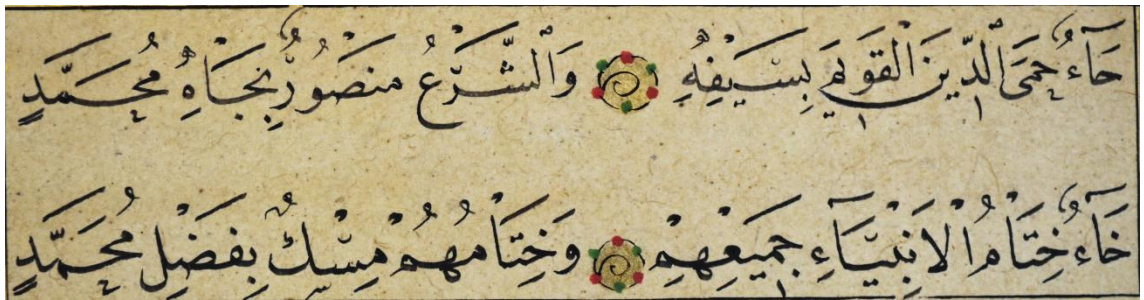 حَآءٌ حِمَى ٱلدِّينَ ٱلْقَوِيمَ بِسَيْفِهِ وَٱلشَّرْعُ مَنصُورٌ بِجَاهِ مُحَمَّدٍ
خَآءٌ خِتَامُ الْاَنْبِيَآءِ جَمِيْعِهِمْ وَخِتَامُهُمْ مِسْكٌ بِفَضْلِ مُحَمَّدٍ